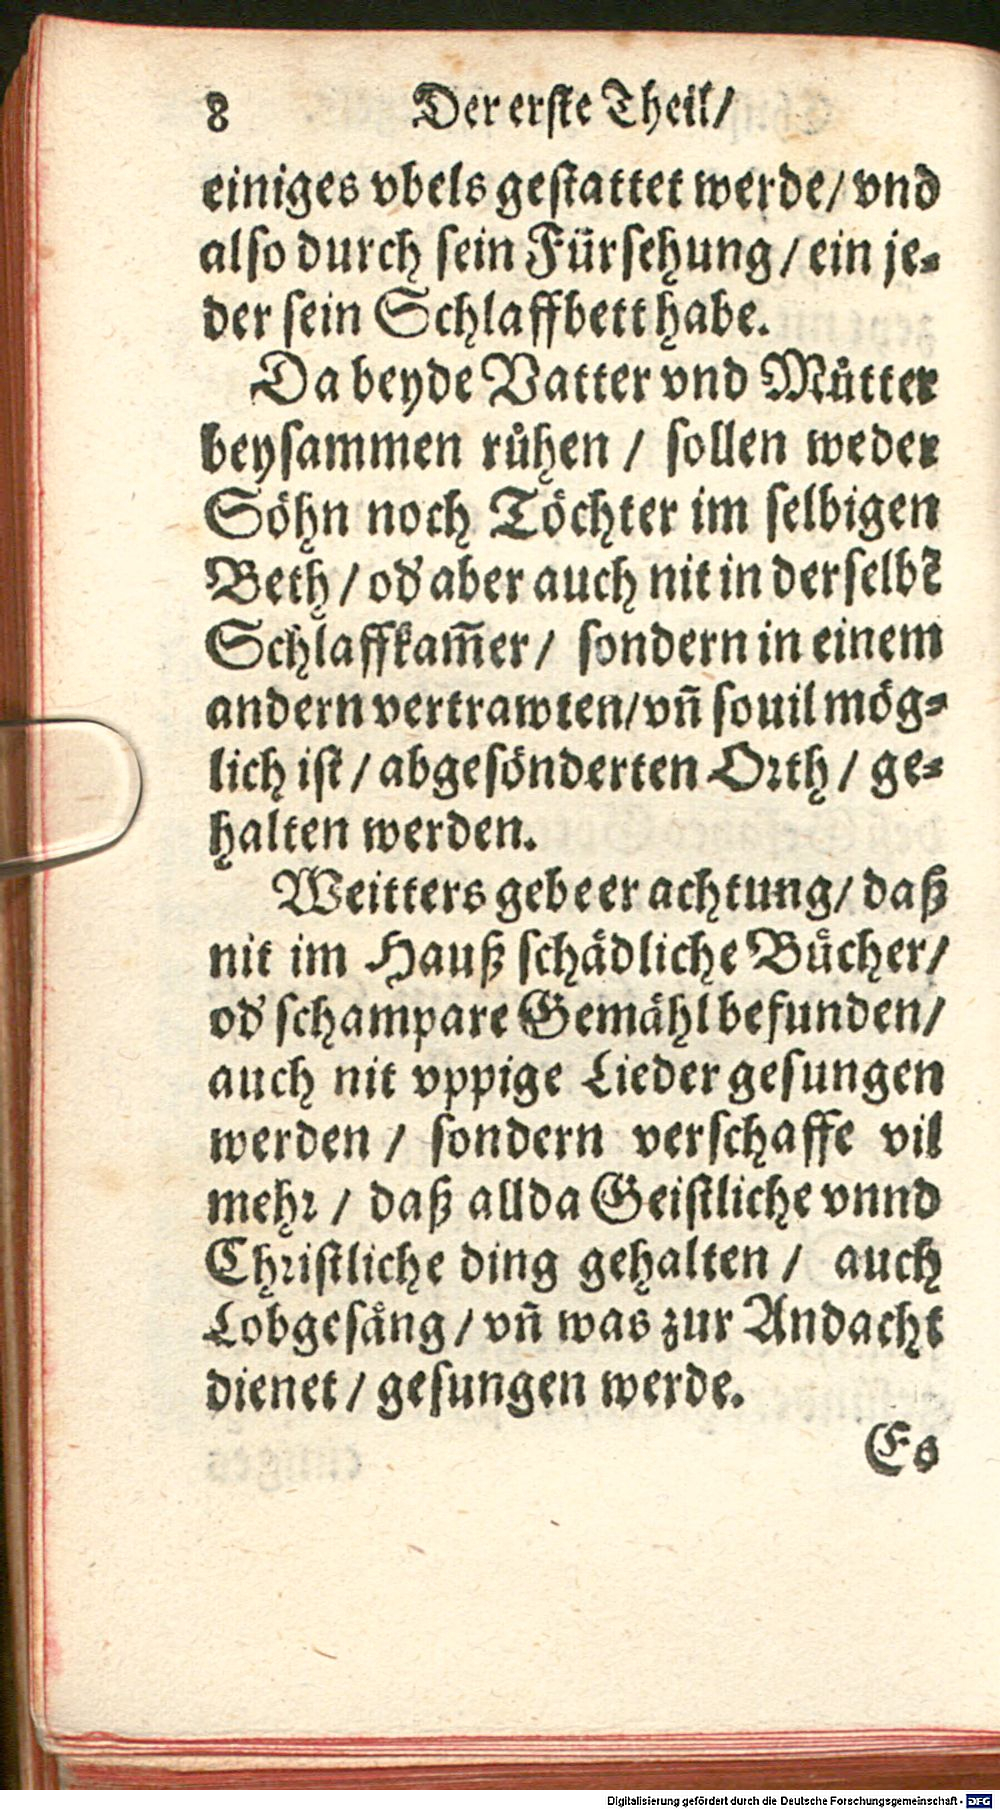 8 Der erste Theil/
einiges vbels gestattet werde/ vnd
also durch sein Fürsehung/ ein je-
der sein Schlaffbett habe.
Da beyde Vatter vnd Můtter
beysammen růhen / sollen weder
Söhn noch Töchter im selbigen
Beth / od' aber auch nit in derselbẽ
Schlaffkam̃er / sondern in einem
andern vertrawten/ vñ souil mög-
lich ist / abgesönderten Orth / ge-
halten werden.
Weitters gebe er achtung/ daß
nit im Hauß schädliche Bücher/
od' schampare Gemähl befunden/
auch nit vppige Lieder gesungen
werden / sondern verschaffe vil
mehr / daß allda Geistliche vnnd
Christliche ding gehalten / auch
Lobgesäng / vñ was zur Andacht
dienet / gesungen werde.
Es
Digitalisierung gefördert durch die Deutsche Forschungsgemeinschaft - DFG